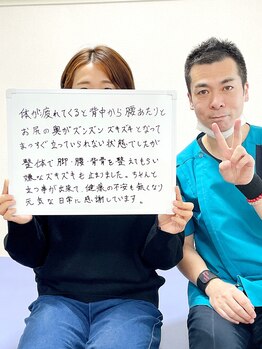 体が疲れてくると背中から腰あたりと
お尻の奥がズンズン ズキズキとなって
まっすぐ立っていられない状態でしたが
整体で脚・腰・背骨を整えてもらい
嫌なズキズキも止まりました。ちゃんと
立つ事が出来て、健康の不安も無くなり
元気な日常に感謝しています。